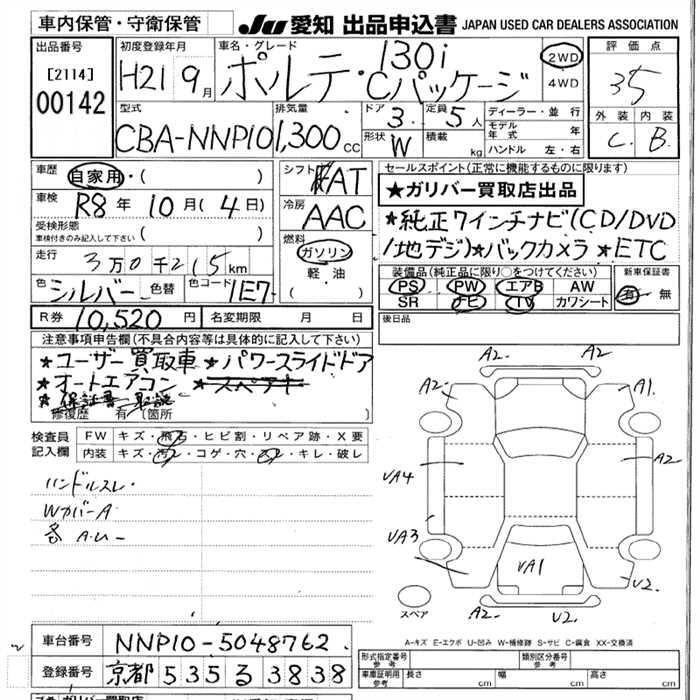 車内保管・守衛保管
JU 愛知 出品申込書 JAPAN USED CAR DEALERS ASSOCIATION
出品番号
[2114]
00142
初度登録年月
H21 9月
車名・グレード
ポルテ・130i Cパッケージ
2WD
4WD
評価点
3.5
外装 内装
C. B.
型式
CBA-NNP10
排気量
1,300 CC
ドア 3.
定員 5人
形状 W
積載 kg
ディーラー・並行
モデル年式 年
ハンドル 左・右
車歴 自家用・( )
車検 R8年 10月(4日)
受検形態
車検付きのみ記入して下さい ( )
走行 3万0千215km
色 シルバー 色替 色コード 1E7
シフト AT
冷房 AAC
燃料
ガソリン
軽・油
( )
セールスポイント(正常に機能するものに限ります)
★ガリバー買取店出品
★純正7インチナビ(CD/DVD
/地デジ)★バックカメラ★ETC
装備品(純正品に限り○をつけてください)
PS PW エアB AW
SR ナビ TV カワシート
新車保証書
有 無
R券 10,520円 名変期限 月 日
後日品
注意事項申告欄(不具合内容等は具体的に記入して下さい)
★ユーザー買取車 ★パワースライドドア
★オートエアコン ★スペアキー
★保証書 取説
修復歴 有(箇所 )
検査員記入欄
FW キズ・飛石・ヒビ割・リペア跡・X要
内装 キズ・汚レ・コゲ・穴・スレ・キレ・破レ
ハンドルスレ
WカバーA
各A.U
A2. A2
A2. A1.
VA4 A2
VA3
VA1
V2.
A2. V2.
スペア
A-キズ E-エクボ U-凹み W-補修跡 S-サビ C-腐食 XX-交換済
車台番号 NNP10-5048762
登録番号 京都 535 る 3838
形式指定番号 参考
類別区分番号 参考
車庫証明用 参考 長さ cm 幅 cm 高さ cm